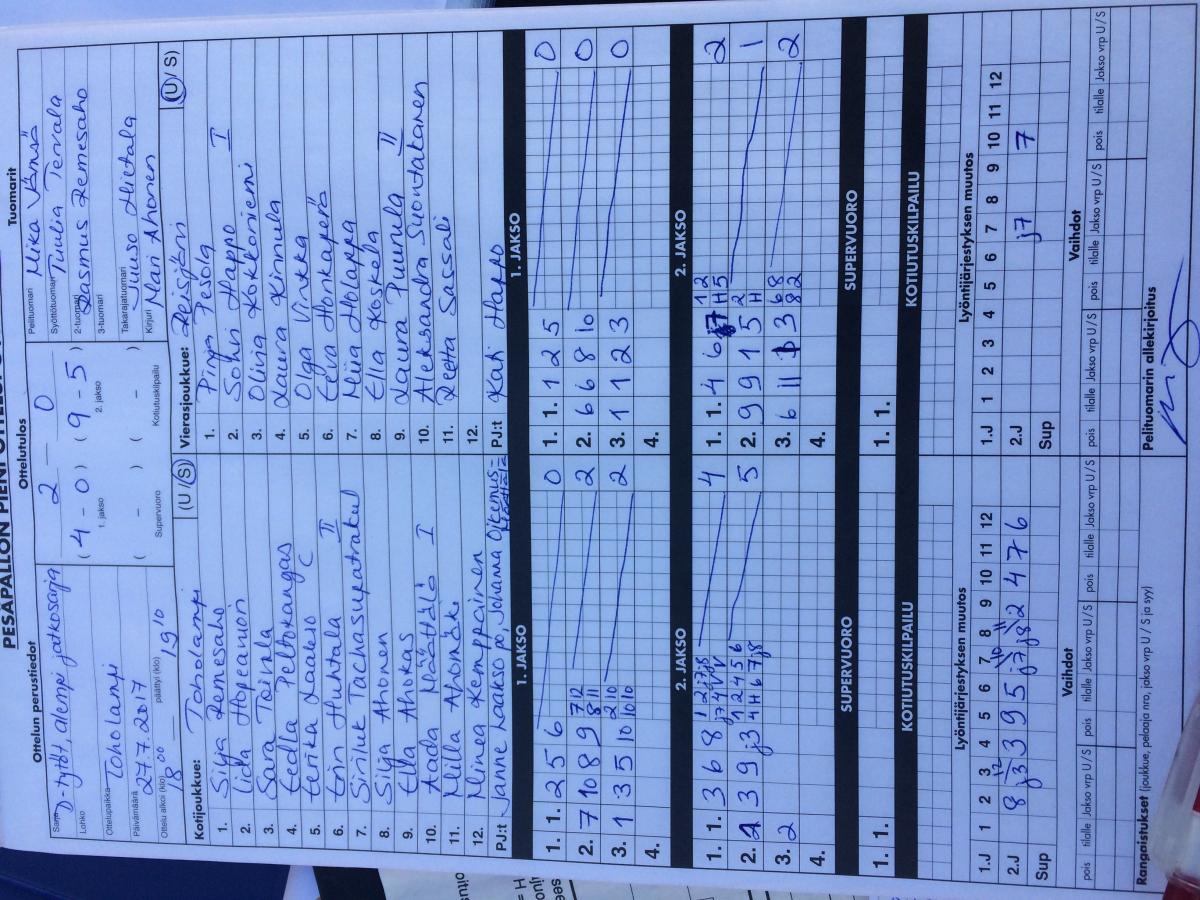 PESÄPALLON PIENI OTTELU
Ottelun perustiedot
Ottelutulos
Tuomarit
Sarja D-tytöt, alempi jatkosarja
Lohko
Ottelupaikka Toholampi
Päivämäärä 27.7.2017
Ottelu alkoi (klo) 18 00 päättyi (klo) 19 10
2 – 0
( 4 - 0 ) ( 9 - 5 )
1. jakso 2. jakso
( - ) ( - )
Supervuoro Kotiutuskilpailu
Pelituomari Mika Jämsä
Syöttötuomari Tuulia Tervala
2-tuomari Rasmus Remesaho
3-tuomari
Takarajatuomari Juuso Hietala
Kirjuri Mari Ahonen
Kotijoukkue: Toholampi (U / S)
1. Silja Remesaho
2. Iida Hopeavuori
3. Sara Toivola
4. Eedla Peltokangas
5. Eerika Laakso C
6. Erin Huhtala II
7. Siriluk
8. Silja Ahonen
9. Ella Ahokas
10. Aada Määttälä I
11. Milla Ahomäki
12. Minea Kemppainen
PJ:t Janne Laakso, Johanna
Vierasjoukkue: Reisjärvi (U / S)
1. Pinja Pesola
2. Sohvi Happo I
3. Olivia Kokkoniemi
4. Laura Kinnula
5. Olga Vinkka
6. Eeva Honkaperä
7. Miia Holappa
8. Ella Koskela
9. Laura Puurula II
10. Aleksandra Suontakanen
11. Reetta Sassali
12.
PJ:t Kati Happo
1. JAKSO
1. 1. 2 5 6 0
2. 7 10 8 9 2
3. 1 3 5 10 2
4.
1. JAKSO
1. 1. 1 2 5 0
2. 6 6 8 10 0
3. 1 1 2 3 0
4.
2. JAKSO
1. 1. 3 6 8 4
2. 1 3 9 5
3. 2
4.
2. JAKSO
1. 1. 4 6 2
2. 9 9 1 5 1
3. 6 11 3 2
4.
SUPERVUORO
1. 1.
SUPERVUORO
1. 1.
KOTIUTUSKILPAILU
KOTIUTUSKILPAILU
Lyöntijärjestyksen muutos
1.J 1 2 3 4 5 6 7 8 9 10 11 12
2.J 8 j3 3 9 5 j7 j8 2 4 7 6
Sup
Lyöntijärjestyksen muutos
1.J 1 2 3 4 5 6 7 8 9 10 11 12
2.J j7 7
Sup
Vaihdot
pois tilalle Jakso vrp U / S pois tilalle Jakso vrp U / S
Vaihdot
pois tilalle Jakso vrp U / S pois tilalle Jakso vrp U / S
Rangaistukset (joukkue, pelaaja nro, jakso vrp U / S ja syy)
Pelituomarin allekirjoitus